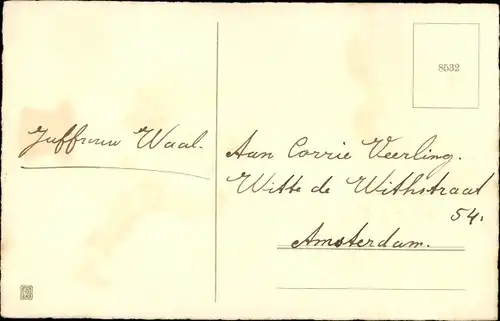 8532
Juffrouw Waal.
Aan Corrie Veerling.
Witte de Withstraat
54.
Amsterdam.